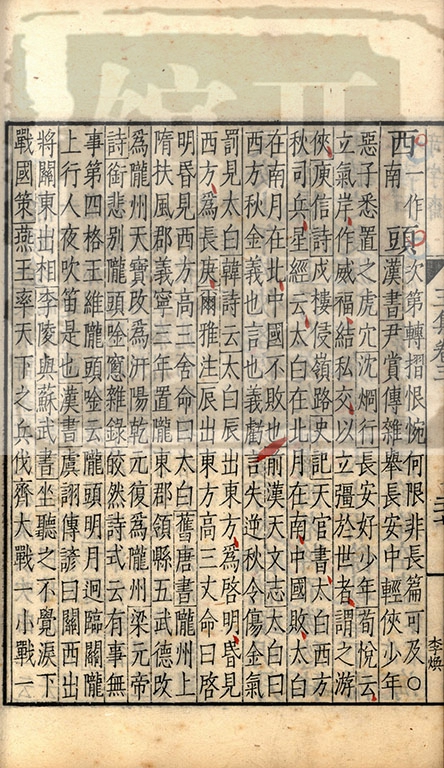 西一作頭次第轉摺恨惋何限非長篇可及○
西南頭漢書尹賞傳雜舉長安中輕俠少年
惡子悉置之虎穴沈烱行長安好少年荀悅云
立氣岸作威福結私交以立彊於世者謂之游
俠庾信詩戍樓侵嶺路史記天官書太白西方
秋司兵星經云太白在北月在南中國敗太白
在南月在北中國不敗也前漢天文志太白曰
西方秋金義也言也義虧言失逆秋令傷金氣
罰見太白韓詩云太白辰出東方為啓明昏見
西方為長庚爾雅注辰出東方高三丈命曰啓
明昏見西方高三舍命曰太白舊唐書隴州上
隋扶風郡義寧三年置隴東郡領縣五武德改
為隴州天寶改為汧陽乾元復為隴州梁元帝
詩銜悲別隴頭唫窻雜錄皎然詩式云有事無
事第四格王維隴頭唫云隴頭明月迥臨關隴
上行人夜吹笛是也漢書虞詡傳諺曰關西出
將關東出相李陵與蘇武書坐聽之不覺淚下
戰國策燕王率天下之兵伐齊大戰一小戰一